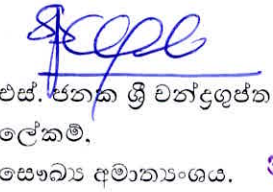 එස්. ජනක ශ්‍රී චන්ද්‍රගුප්ත
ලේකම්,
සෞඛ්‍ය අමාත්‍යංශය.